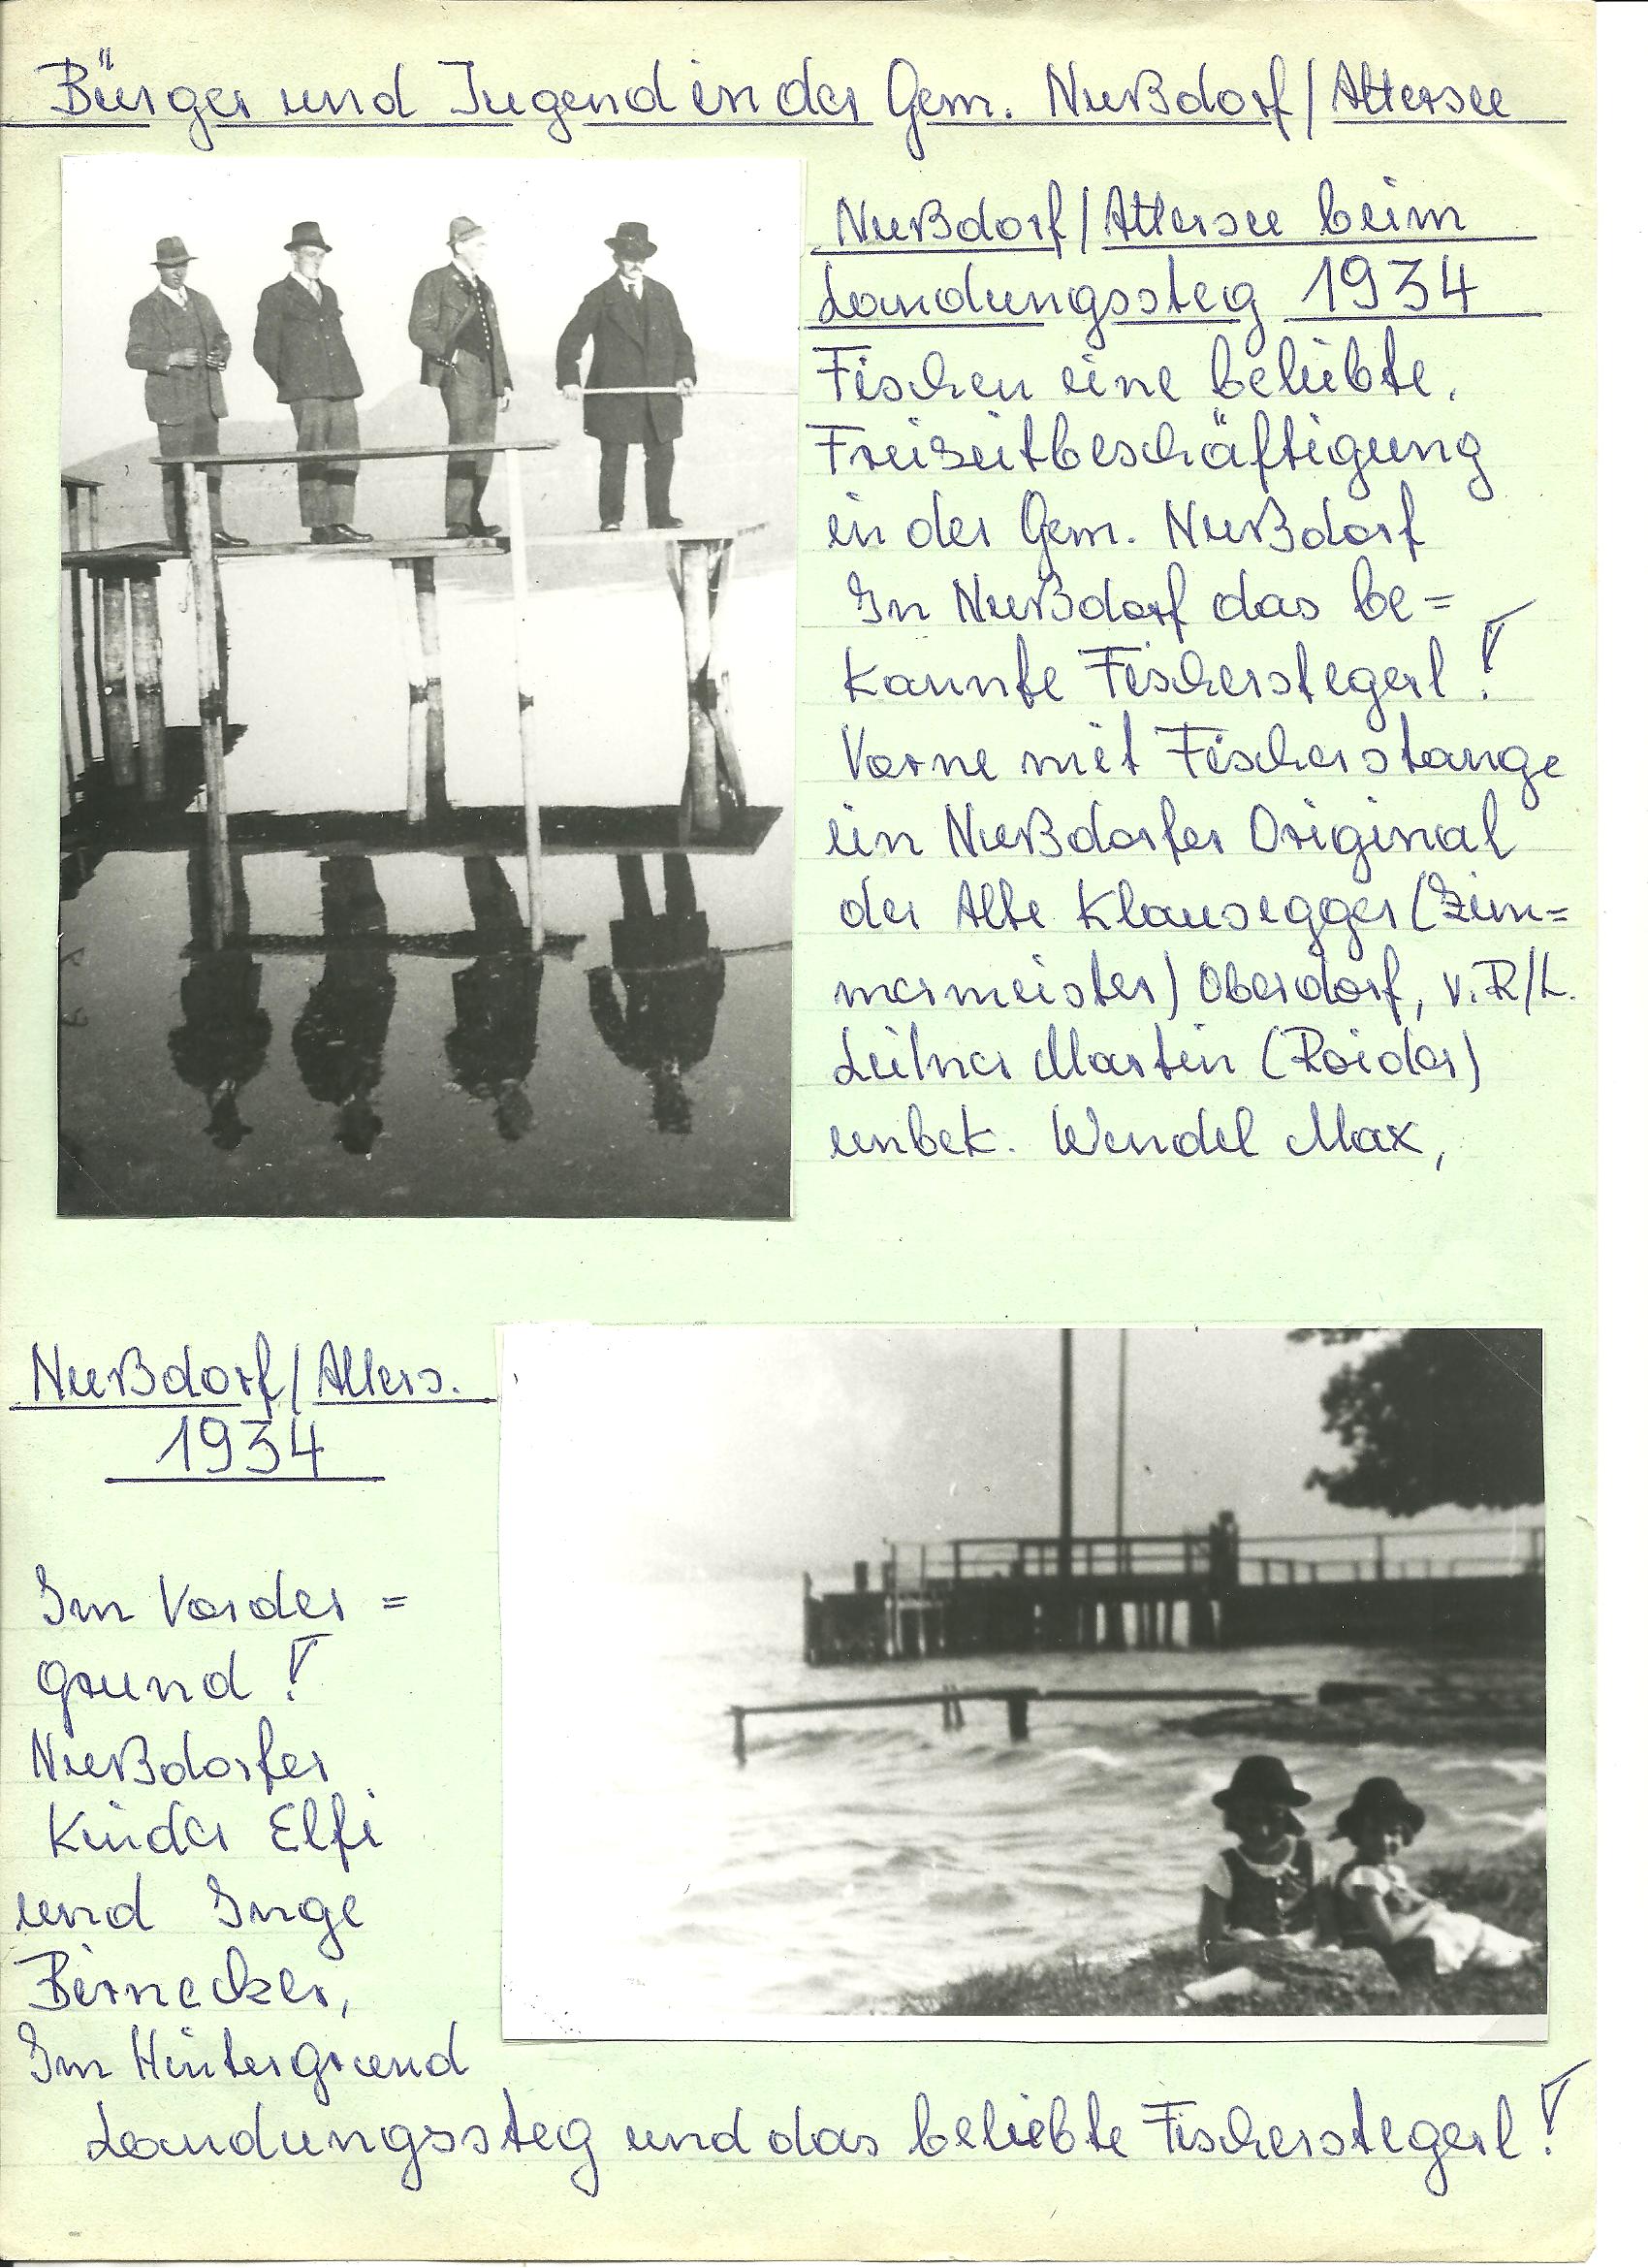 Bürger und Jugend in der Gem. Nußdorf/Attersee
Nußdorf/Attersee beim
Landungssteg 1934
Fischen eine beliebte,
Freizeitbeschäftigung
in der Gem. Nußdorf
In Nußdorf das be=
kannte Fischerstegerl!
Vorne mit Fischerstange
ein Nußdorfer Original
der Alte Klausegger (Zim=
mermeister) Oberdorf, v.R/L.
Leitner Martin (Roider)
unbek. Wendel Max,
Nußdorf/Atters.
1934
Im Vorder=
grund!
Nußdorfer
Kinder Elfi
und Inge
Birnecker,
Im Hintergrund
Landungssteg und das beliebte Fischerstegerl!